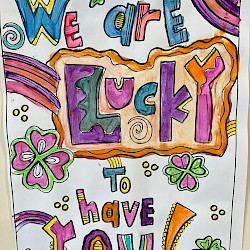 We aRe
LucKY
To
have
YOU!